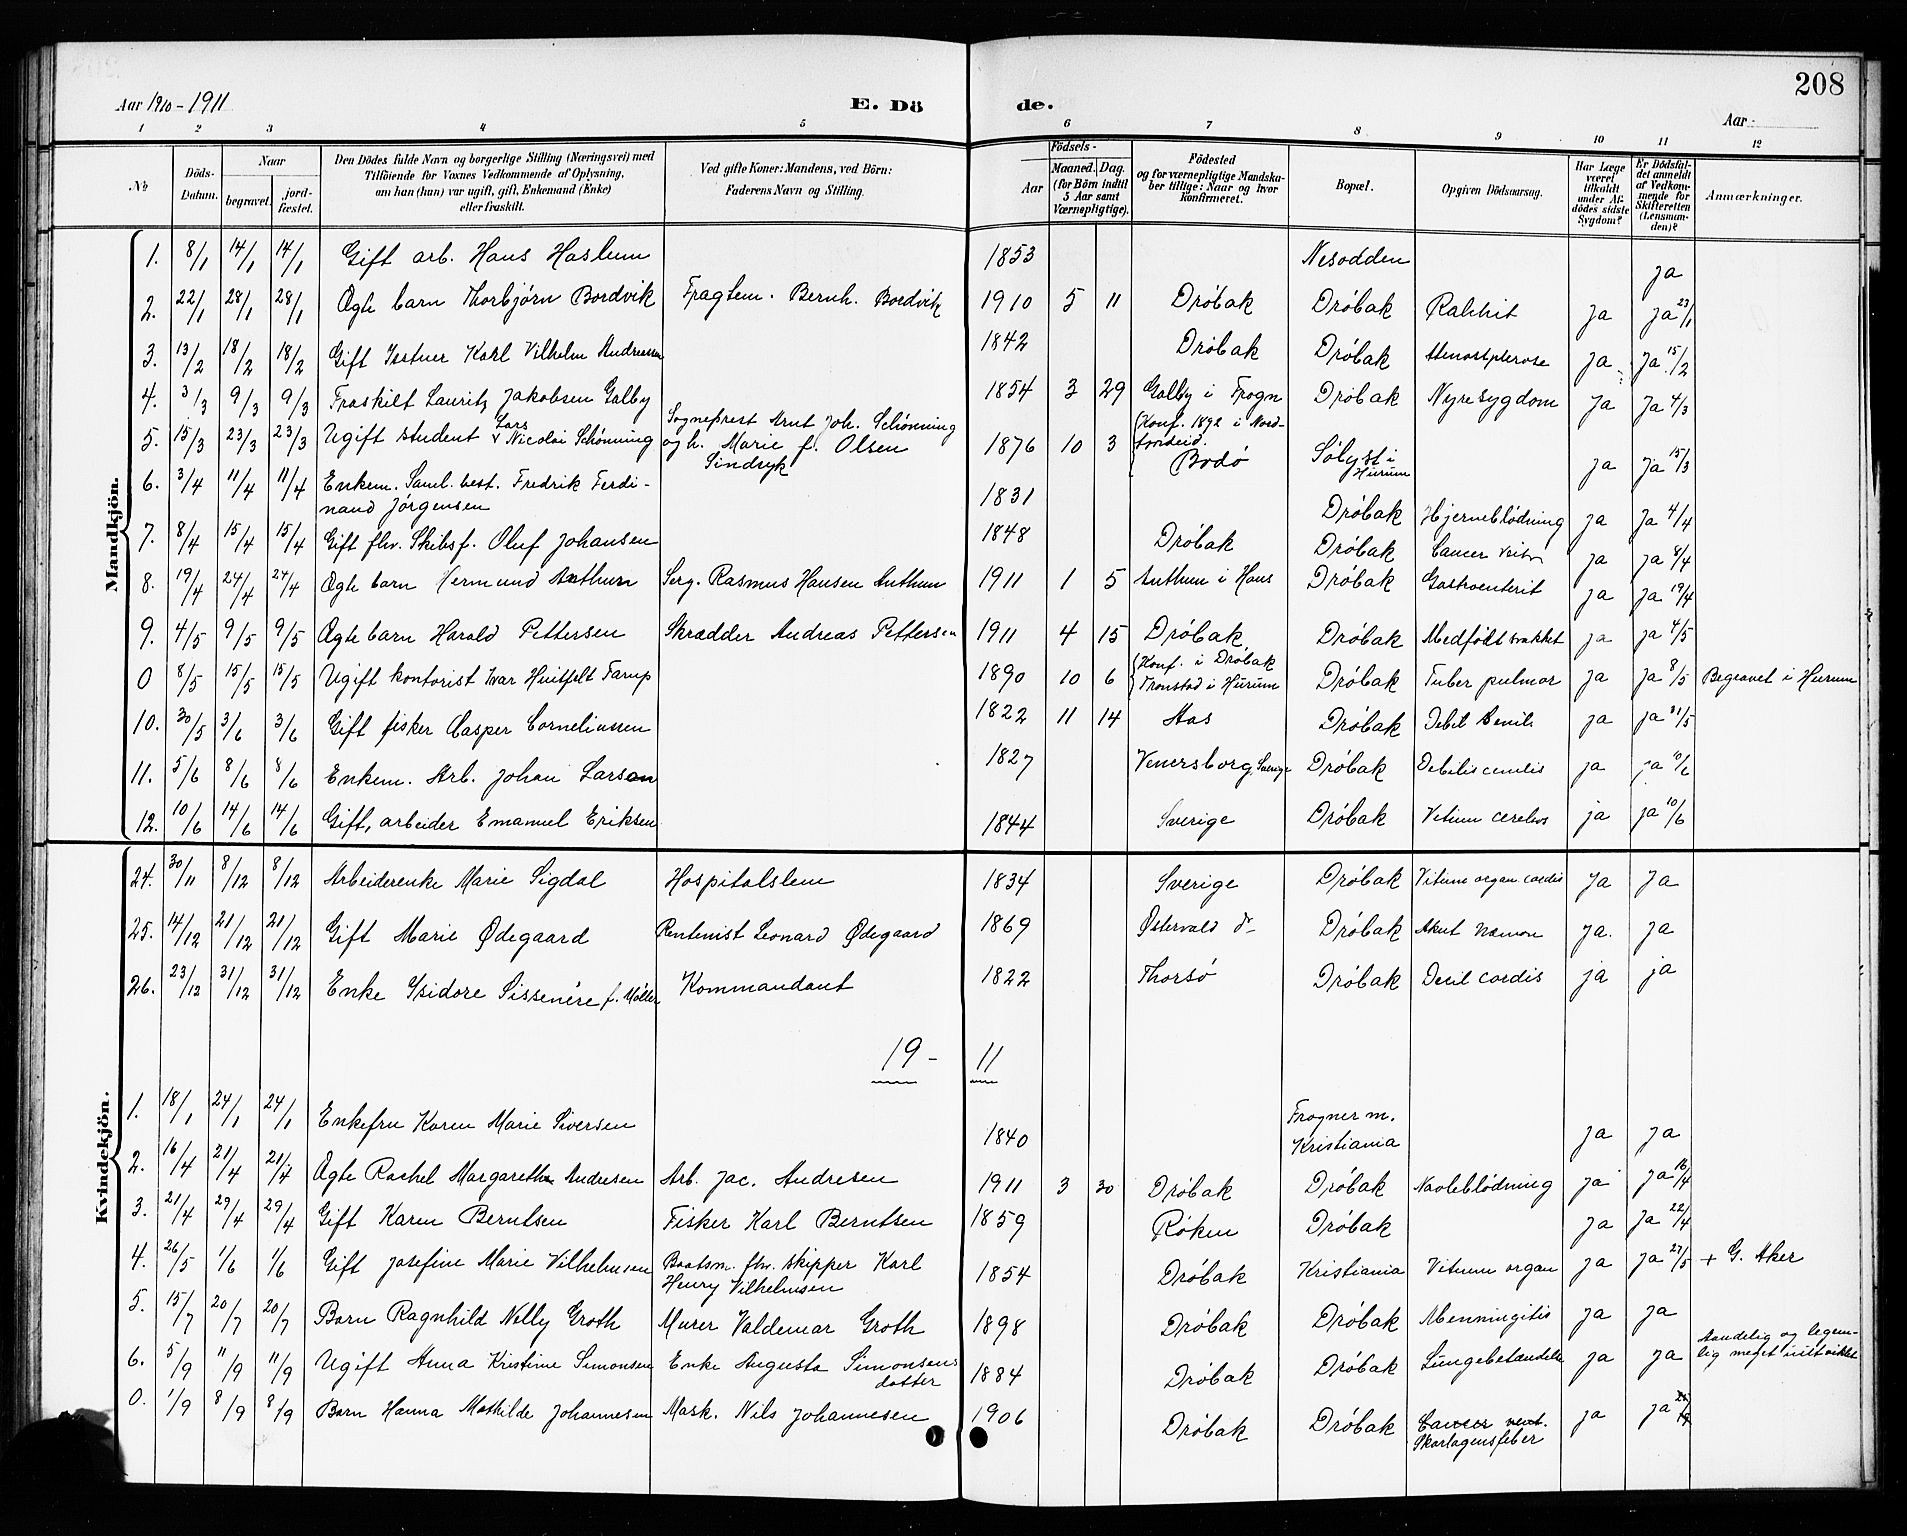 208
Aar 1910-1911
E. Dö de.
Aar:
1 2 3 4 5 6 7 8 9 10 11 12
No
Döds-Datum.
Naar begravet. jordfæstet.
Den Dödes fulde Navn og borgerlige Stilling (Næringsvei) med Tilföiende for Voxnes Vedkommende af Oplysning, om han (hun) var ugift, gift, Enkemand (Enke) eller fraskilt.
Ved gifte Koner: Mandens, ved Börn: Faderens Navn og Stilling.
Födsels-
Aar Maaned. Dag. (for Börn indtil 5 Aar samt Værnepligtige).
Födested og for værnepligtige Mandskaber tillige: Naar og hvor konfirmeret.
Bopæl.
Opgiven Dödsaarsag.
Har Læge været tilkaldt under Afdödes sidste Sygdom?
Er Dödsfaldet anmeldt af Vedkommende for Skifteretten (Lensmanden)?
Anmærkninger.
Mandkjön.
1. 8/1 14/1 14/1 Gift arb. Hans Haslum 1853 Nesodden ja
2. 22/1 28/1 28/1 Ægte barn Thorbjørn Bordvik Fragtem. Bernh. Bordvik 1910 5 11 Drøbak Drøbak Rakhit ja ja 23/1
3. 13/2 18/2 18/2 Gift Karl Vilhelm Andreassen 1842 Drøbak Drøbak ja ja 15/2
4. 3/3 9/3 9/3 Fraskilt Lauritz Jakobsen Galby 1854 3 29 Galby i Frogn Drøbak Nyresygdom ja ja 4/3
5. 15/3 23/3 23/3 Ugift student Lars Nicolai Schønning Sogneprest Arnt Joh. Schønning og h. Marie f. Olsen Sindryk 1876 10 3 Konf. 1892 i Bodø Sølyst i Hurum ja ja 15/3
6. 3/4 11/4 11/4 Enkem. Saml. best. Fredrik Ferdinand Jørgensen 1831 Drøbak Hjerneblødning ja ja 4/4
7. 8/4 15/4 15/4 Gift fhv. Skibsf. Oluf Johansen 1848 Drøbak Drøbak Cancer ja ja 8/4
8. 19/4 24/4 24/4 Ægte barn Hermund Anthun Serg. Rasmus Hansen Anthun 1911 1 5 Anthun i Drøbak Gastroenterit ja ja 19/4
9. 4/5 9/5 9/5 Ægte barn Harald Pettersen Skrædder Andreas Pettersen 1911 4 15 Drøbak Drøbak Medfødt svakhet ja ja 4/5
0 8/5 15/5 15/5 Ugift kontorist Ivar Huitfelt Farup 1890 10 6 Konf. i Drøbak Tronstad i Hurum Drøbak Tuber pulmor ja ja 8/5 Begravet i Hurum
10. 30/5 3/6 3/6 Gift fisker Casper Corneliussen 1822 11 14 Aas Drøbak Debil senil. ja ja 31/5
11. 5/6 8/6 8/6 Enkem. Arb. Johan Larson 1827 Venersborg, Sverige Drøbak Debilis cenilis ja ja 6/6
12. 10/6 14/6 14/6 Gift, arbeider Emanuel Eriksen 1844 Sverige Drøbak Vitium cerebri ja ja 10/6
Kvindekjön.
24. 30/11 8/12 8/12 Arbeiderenke Marie Sigdal Hospitalslem 1834 Sverige Drøbak Vitium organ cordis ja ja
25. 14/12 21/12 21/12 Gift Marie Ødegaard Rentenist Leonard Ødegaard 1869 Østervald Drøbak Akut ja. ja
26. 23/12 31/12 31/12 Enke Isidore Sissenére f. Møller Kommandant 1822 Thorsø Drøbak cordis ja ja
19-11
1. 18/1 24/1 24/1 Enkefru Karen Marie Siversen 1840 Frogner m. Kristiania ja ja
2. 16/4 21/4 21/4 Ægte Rachel Margarethe Andresen Arb. Jac. Andresen 1911 3 30 Drøbak Drøbak Navleblødning ja ja 16/4
3. 21/4 29/4 29/4 Gift Karen Berntsen Fisker Karl Berntsen 1859 Røken Drøbak ja ja 22/4
4. 26/5 1/6 1/6 Gift Josefine Marie Vilhelmsen Baatsm. fhv. skipper Karl Henry Vilhelmsen 1854 Drøbak Kristiania Vitium organ ja ja 27/5 + G. Aker
5. 15/7 20/7 20/7 Barn Ragnhild Nelly Groth Murer Valdemar Groth 1898 Drøbak Drøbak Menningitis ja ja
6. 5/9 11/9 11/9 Ugift Anna Kristine Simonsen Enke Augusta Simonsens datter 1884 Drøbak Drøbak Lungebetændelse ja ja Aandelig og legemlig meget uutviklet
0. 1/9 8/9 8/9 Barn Hanna Mathilde Johannesen Mask. Nils Johannesen 1906 Drøbak Drøbak Cancer vent. Skarlagensfeber ja ja